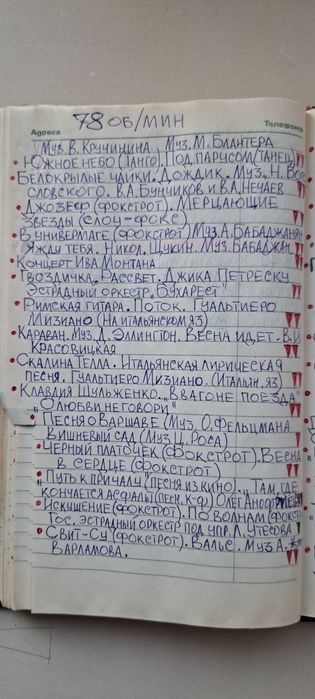 78 ОБ/МИН
Адреса Телефоны
Муз. В. Кручинина Муз. М. Блантера
Южное небо (Танго). Под парусом (Танец)
Белокрылые чайки. Дождик. Муз. Н. Бого
словского. В. А. Бунчиков и В. А. Нечаев
Джозеф (фокстрот). Мерцающие
звезды (слоу-фокс)
В универмаге (фокстрот) Муз. А. Бабаджанян
Я жду тебя. Никол. Щукин. Муз. Бабаджан.
Концерт Ива Монтана
Гвоздичка. Рассвет. Джика Петреску
Эстрадный оркестр. Бухарест
Римская гитара. Поток. Гуальтиеро
Мизиано (на итальянском яз)
Караван. Муз. Д. Эллингтон. Весна идет. В.
Красовицкая
Скалинателла. Итальянская лирическая
песня. Гуальтиеро Мизиано. (Итальян. яз)
Клавдия Шульженко. "В вагоне поезда"
"О любви не говори"
Песня о Варшаве (Муз. О. Фельцмана
Вишневый сад (Муз. Н. Роса)
Черный платочек (Фокстрот). Весна
в сердце (фокстрот)
"Путь к причалу" (песня из кино). "Там, где
кончается асфальт" (песн. к-ф) Олег Анофриев
Искушение (фокстрот). По волнам (фокст
Гос. эстрадный оркестр под упр. Л. Утесова
Свит-Су (фокстрот). Вальс. Муз А.
Варламова.